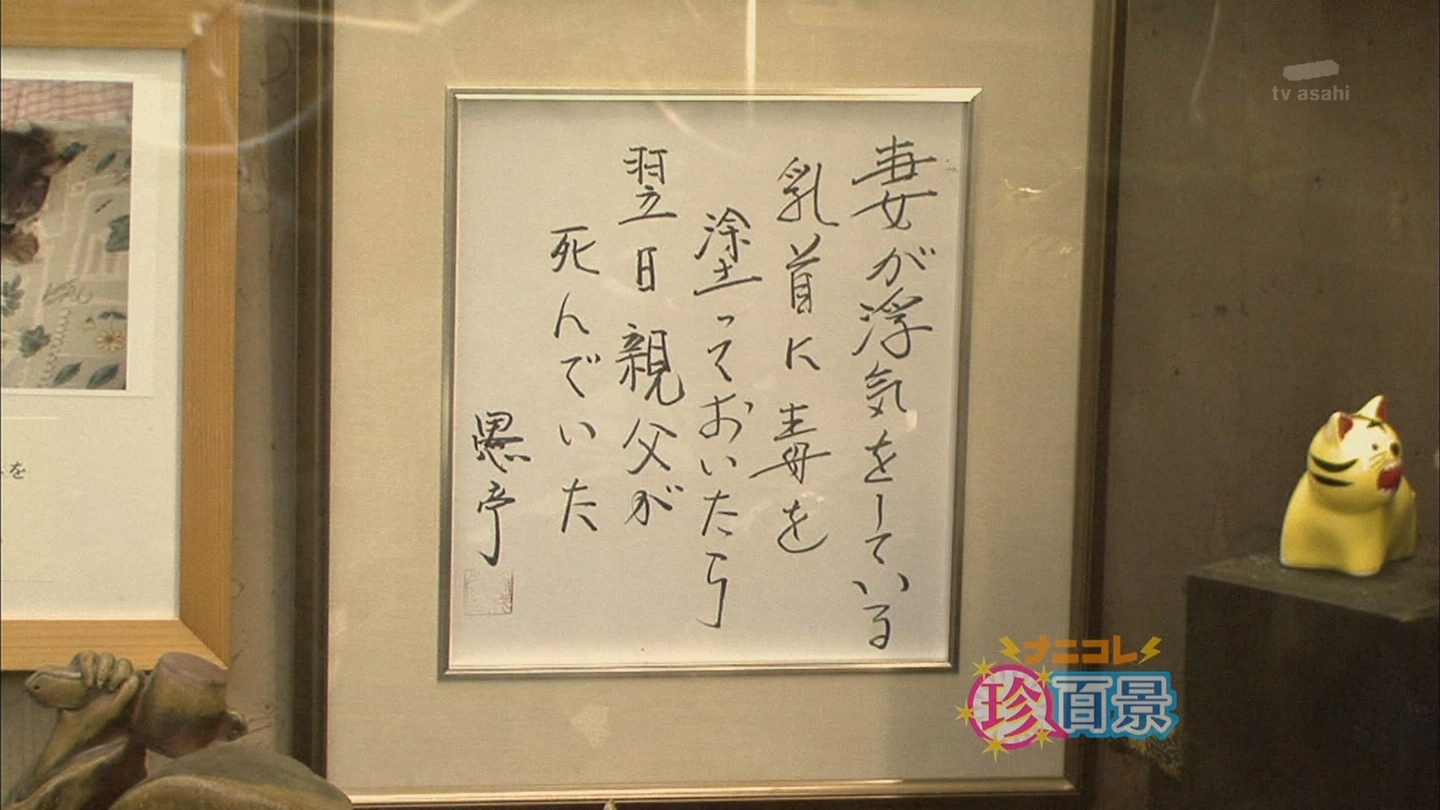 妻が浮気をしている
乳首に毒を
塗っておいたら
翌日親父が
死んでいた
愚亭
tv asahi
ナニコレ
珍百景
を